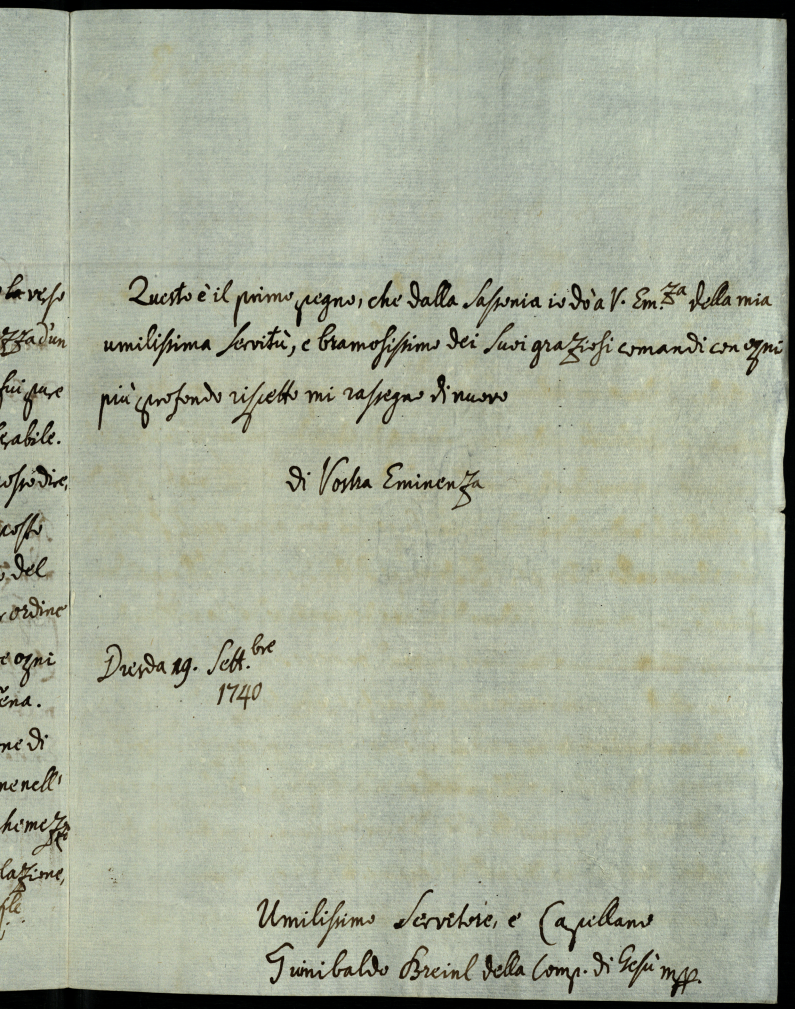 la verso
ezza d'un
fui pure
erabile.
del
ordine
e ogni
ena.
ne di
ne nell'
lazione,
Questo è il primo pegno, che dalla Sassonia io dò à V. Em.za della mia
umilissima Servitù, e bramosissimo dei Suoi graziosi comandi con ogni
più profondo rispetto mi rassegno di nuovo
di Vostra Eminenza
Dresda 19. Sett.bre
1740
Umilissimo Servitore, e Capellano
Gunibaldo Breinl della Comp. di Gesù mpp.